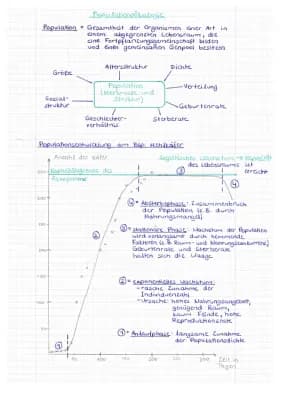 Populationsökologie
Population = Gesamtheit der Organismen einer Art in
einem abgegrenzten Lebensraum, die
eine Fortpflanzungsgemeinschaft bilden
und einen gemeinsamen Genpool besitzen
Altersstruktur
Dichte
Größe
Population
(Merkmale und
Struktur)
Verteilung
Sozial-
struktur
Geburtenrate
Geschlechter-
verhältnis
Sterberate
Populationsentwicklung am Bsp. Mehlkäfer
Anzahl der Käfer
des Lebensraums ist
erreicht
Kapazitätsgrenze des
Ökosystems
③
④
④ = Absterbephase: Zusammenbruch
der Population (z.B. durch
Nahrungsmangel)
③ = stationäre Phase: Wachstum der Population
wird verlangsamt durch hemmende
Faktoren (z.B. Raum- und Nahrungskonkurrenz)
Geburtenrate und Sterberate
halten sich die Waage
②
② = exponentielles Wachstum:
- rasche Zunahme der
Individuenzahl
- Ursache: hohes Nahrungsangebot,
genügend Raum,
kaum Feinde, hohe
Reproduktionsrate
① = Anlaufphase: langsame Zunahme
der Populationsdichte
①
Zeit in
Tagen